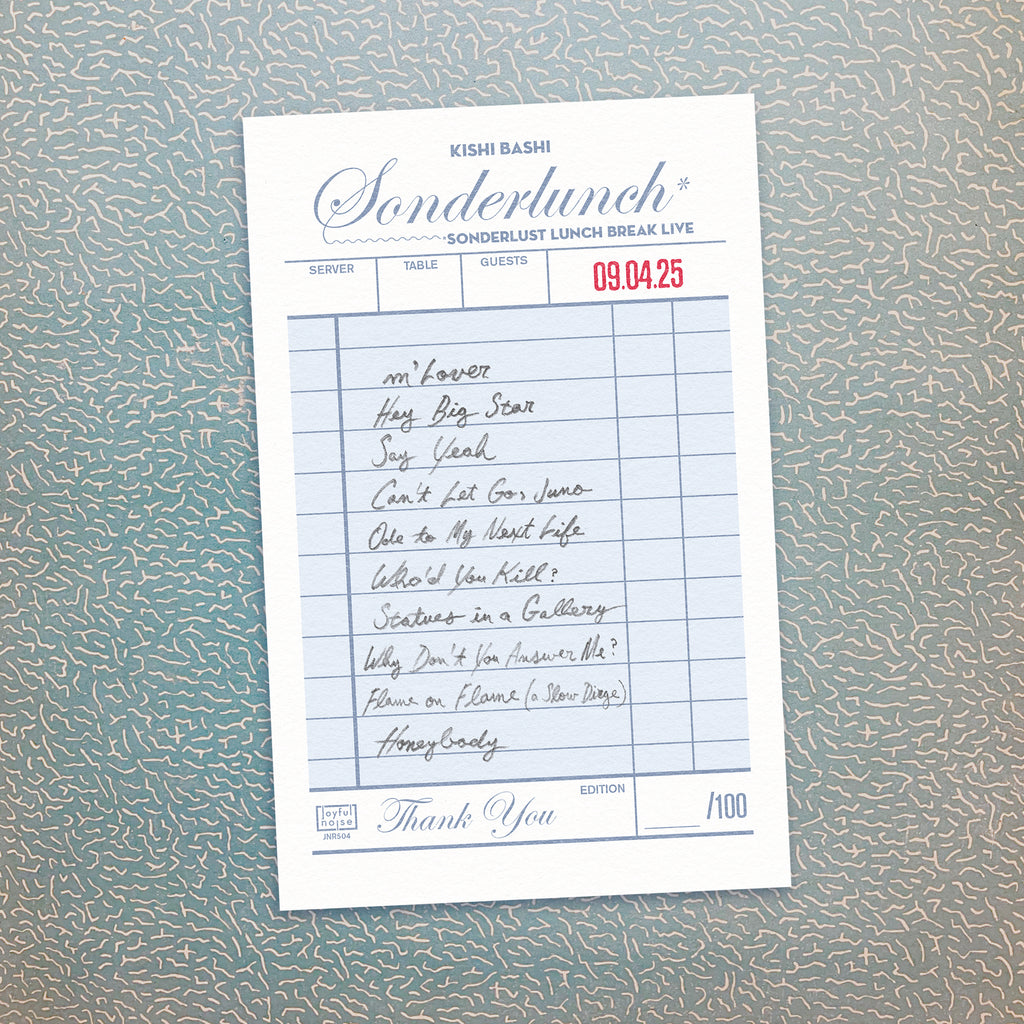 KISHI BASHI
Sonderlunch*
*SONDERLUST LUNCH BREAK LIVE
SERVER TABLE GUESTS 09.04.25
m'Lover
Hey Big Star
Say Yeah
Can't Let Go, Juno
Ode to My Next Life
Who'd You Kill?
Statues in a Gallery
Why Don't You Answer Me?
Flame on Flame (a Slow Dirge)
Honeybody
EDITION
joyful
noise
JNR504
Thank You
/100